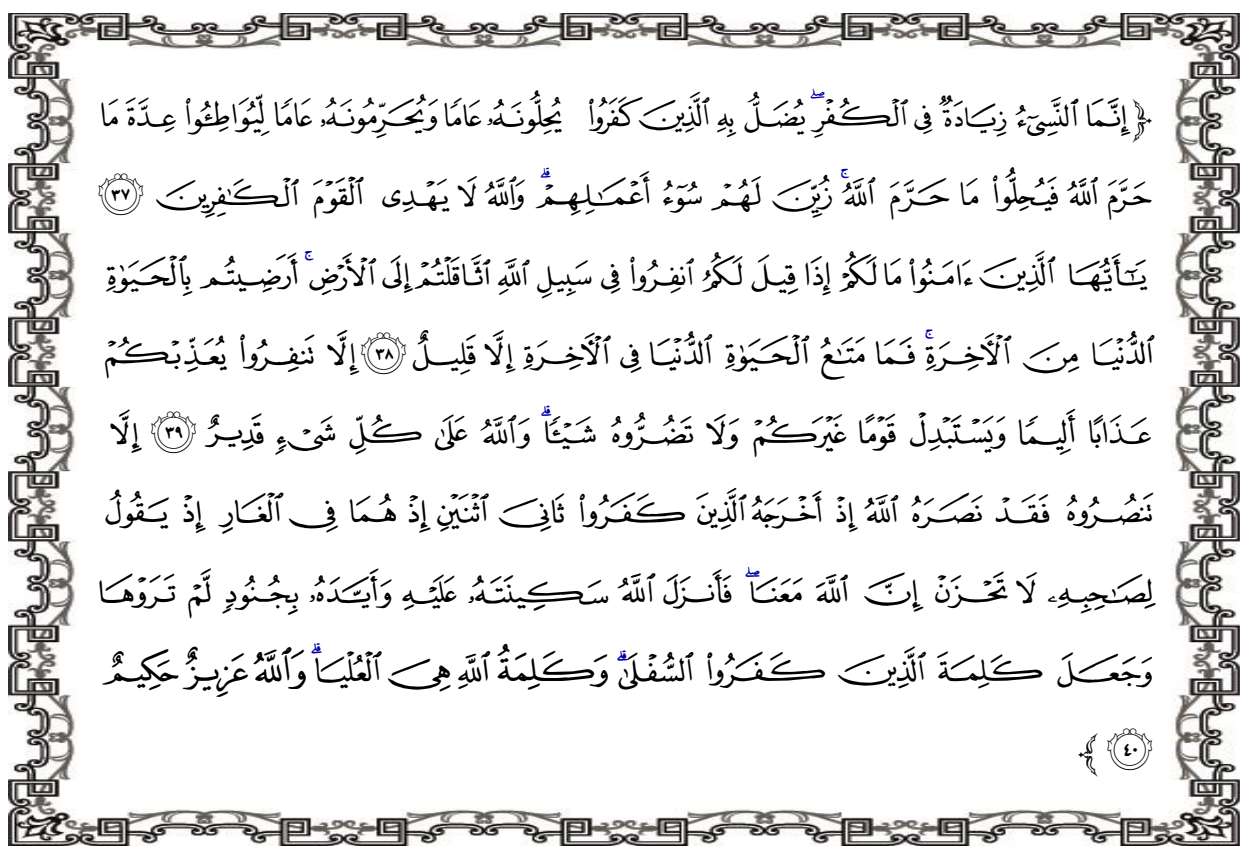 ﴿ إِنَّمَا ٱلنَّسِيٓءُ زِيَادَةٌ فِي ٱلۡكُفۡرِۖ يُضَلُّ بِهِ ٱلَّذِينَ كَفَرُواْ يُحِلُّونَهُۥ عَامٗا وَيُحَرِّمُونَهُۥ عَامٗا لِّيُوَاطِـُٔواْ عِدَّةَ مَا
حَرَّمَ ٱللَّهُ فَيُحِلُّواْ مَا حَرَّمَ ٱللَّهُۚ زُيِّنَ لَهُمۡ سُوٓءُ أَعۡمَٰلِهِمۡۗ وَٱللَّهُ لَا يَهۡدِي ٱلۡقَوۡمَ ٱلۡكَٰفِرِينَ ٣٧
يَٰٓأَيُّهَا ٱلَّذِينَ ءَامَنُواْ مَا لَكُمۡ إِذَا قِيلَ لَكُمُ ٱنفِرُواْ فِي سَبِيلِ ٱللَّهِ ٱثَّاقَلۡتُمۡ إِلَى ٱلۡأَرۡضِۚ أَرَضِيتُم بِٱلۡحَيَوٰةِ
ٱلدُّنۡيَا مِنَ ٱلۡأٓخِرَةِۚ فَمَا مَتَٰعُ ٱلۡحَيَوٰةِ ٱلدُّنۡيَا فِي ٱلۡأٓخِرَةِ إِلَّا قَلِيلٌ ٣٨ إِلَّا تَنفِرُواْ يُعَذِّبۡكُمۡ
عَذَابًا أَلِيمٗا وَيَسۡتَبۡدِلۡ قَوۡمًا غَيۡرَكُمۡ وَلَا تَضُرُّوهُ شَيۡـٔٗاۗ وَٱللَّهُ عَلَىٰ كُلِّ شَيۡءٖ قَدِيرٌ ٣٩ إِلَّا
تَنصُرُوهُ فَقَدۡ نَصَرَهُ ٱللَّهُ إِذۡ أَخۡرَجَهُ ٱلَّذِينَ كَفَرُواْ ثَانِيَ ٱثۡنَيۡنِ إِذۡ هُمَا فِي ٱلۡغَارِ إِذۡ يَقُولُ
لِصَٰحِبِهِۦ لَا تَحۡزَنۡ إِنَّ ٱللَّهَ مَعَنَاۖ فَأَنزَلَ ٱللَّهُ سَكِينَتَهُۥ عَلَيۡهِ وَأَيَّدَهُۥ بِجُنُودٖ لَّمۡ تَرَوۡهَا
وَجَعَلَ كَلِمَةَ ٱلَّذِينَ كَفَرُواْ ٱلسُّفۡلَىٰۗ وَكَلِمَةُ ٱللَّهِ هِيَ ٱلۡعُلۡيَاۗ وَٱللَّهُ عَزِيزٌ حَكِيمٌ
٤٠ ﴾